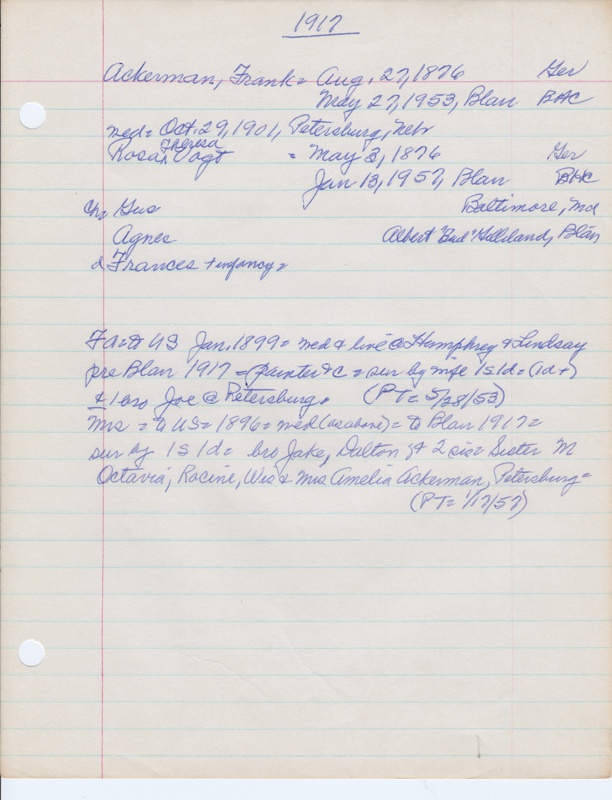 1917
Ackerman, Frank = Aug. 27, 1876 Ger
May 27, 1953, Blair BHC
med = Oct. 29, 1901, Petersburg, Nebr
Theresa
Rosa Vogt = May 3, 1876 Ger
Jan 13, 1957, Blair BHC
Ch = Gus Baltimore, Md
Agnes Albert "Bud" Gilliland, Blair
d Frances + infancy =
FA = to US Jan. 1899 = med & live @ Humphrey & Lindsay
pre Blair 1917 = painter & c = sur by wife 1s 1d = (1d+)
& 1 bro Joe @ Petersburg. (PT = 5/28/53)
Mrs = to US = 1896 = med (as above) = to Blair 1917 =
sur by 1s 1d = bro Jake, Dalton, & 2 sis = Sister M
Octavia, Racine, Wis & Mrs Amelia Ackerman, Petersburg =
(PT = 1/17/57)